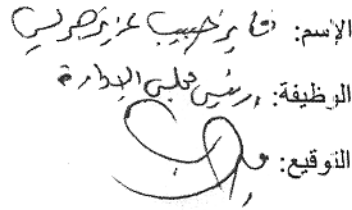 الإسم: فايز حبيب عزيز جرجس
الوظيفة: رئيس مجلس الإدارة
التوقيع: